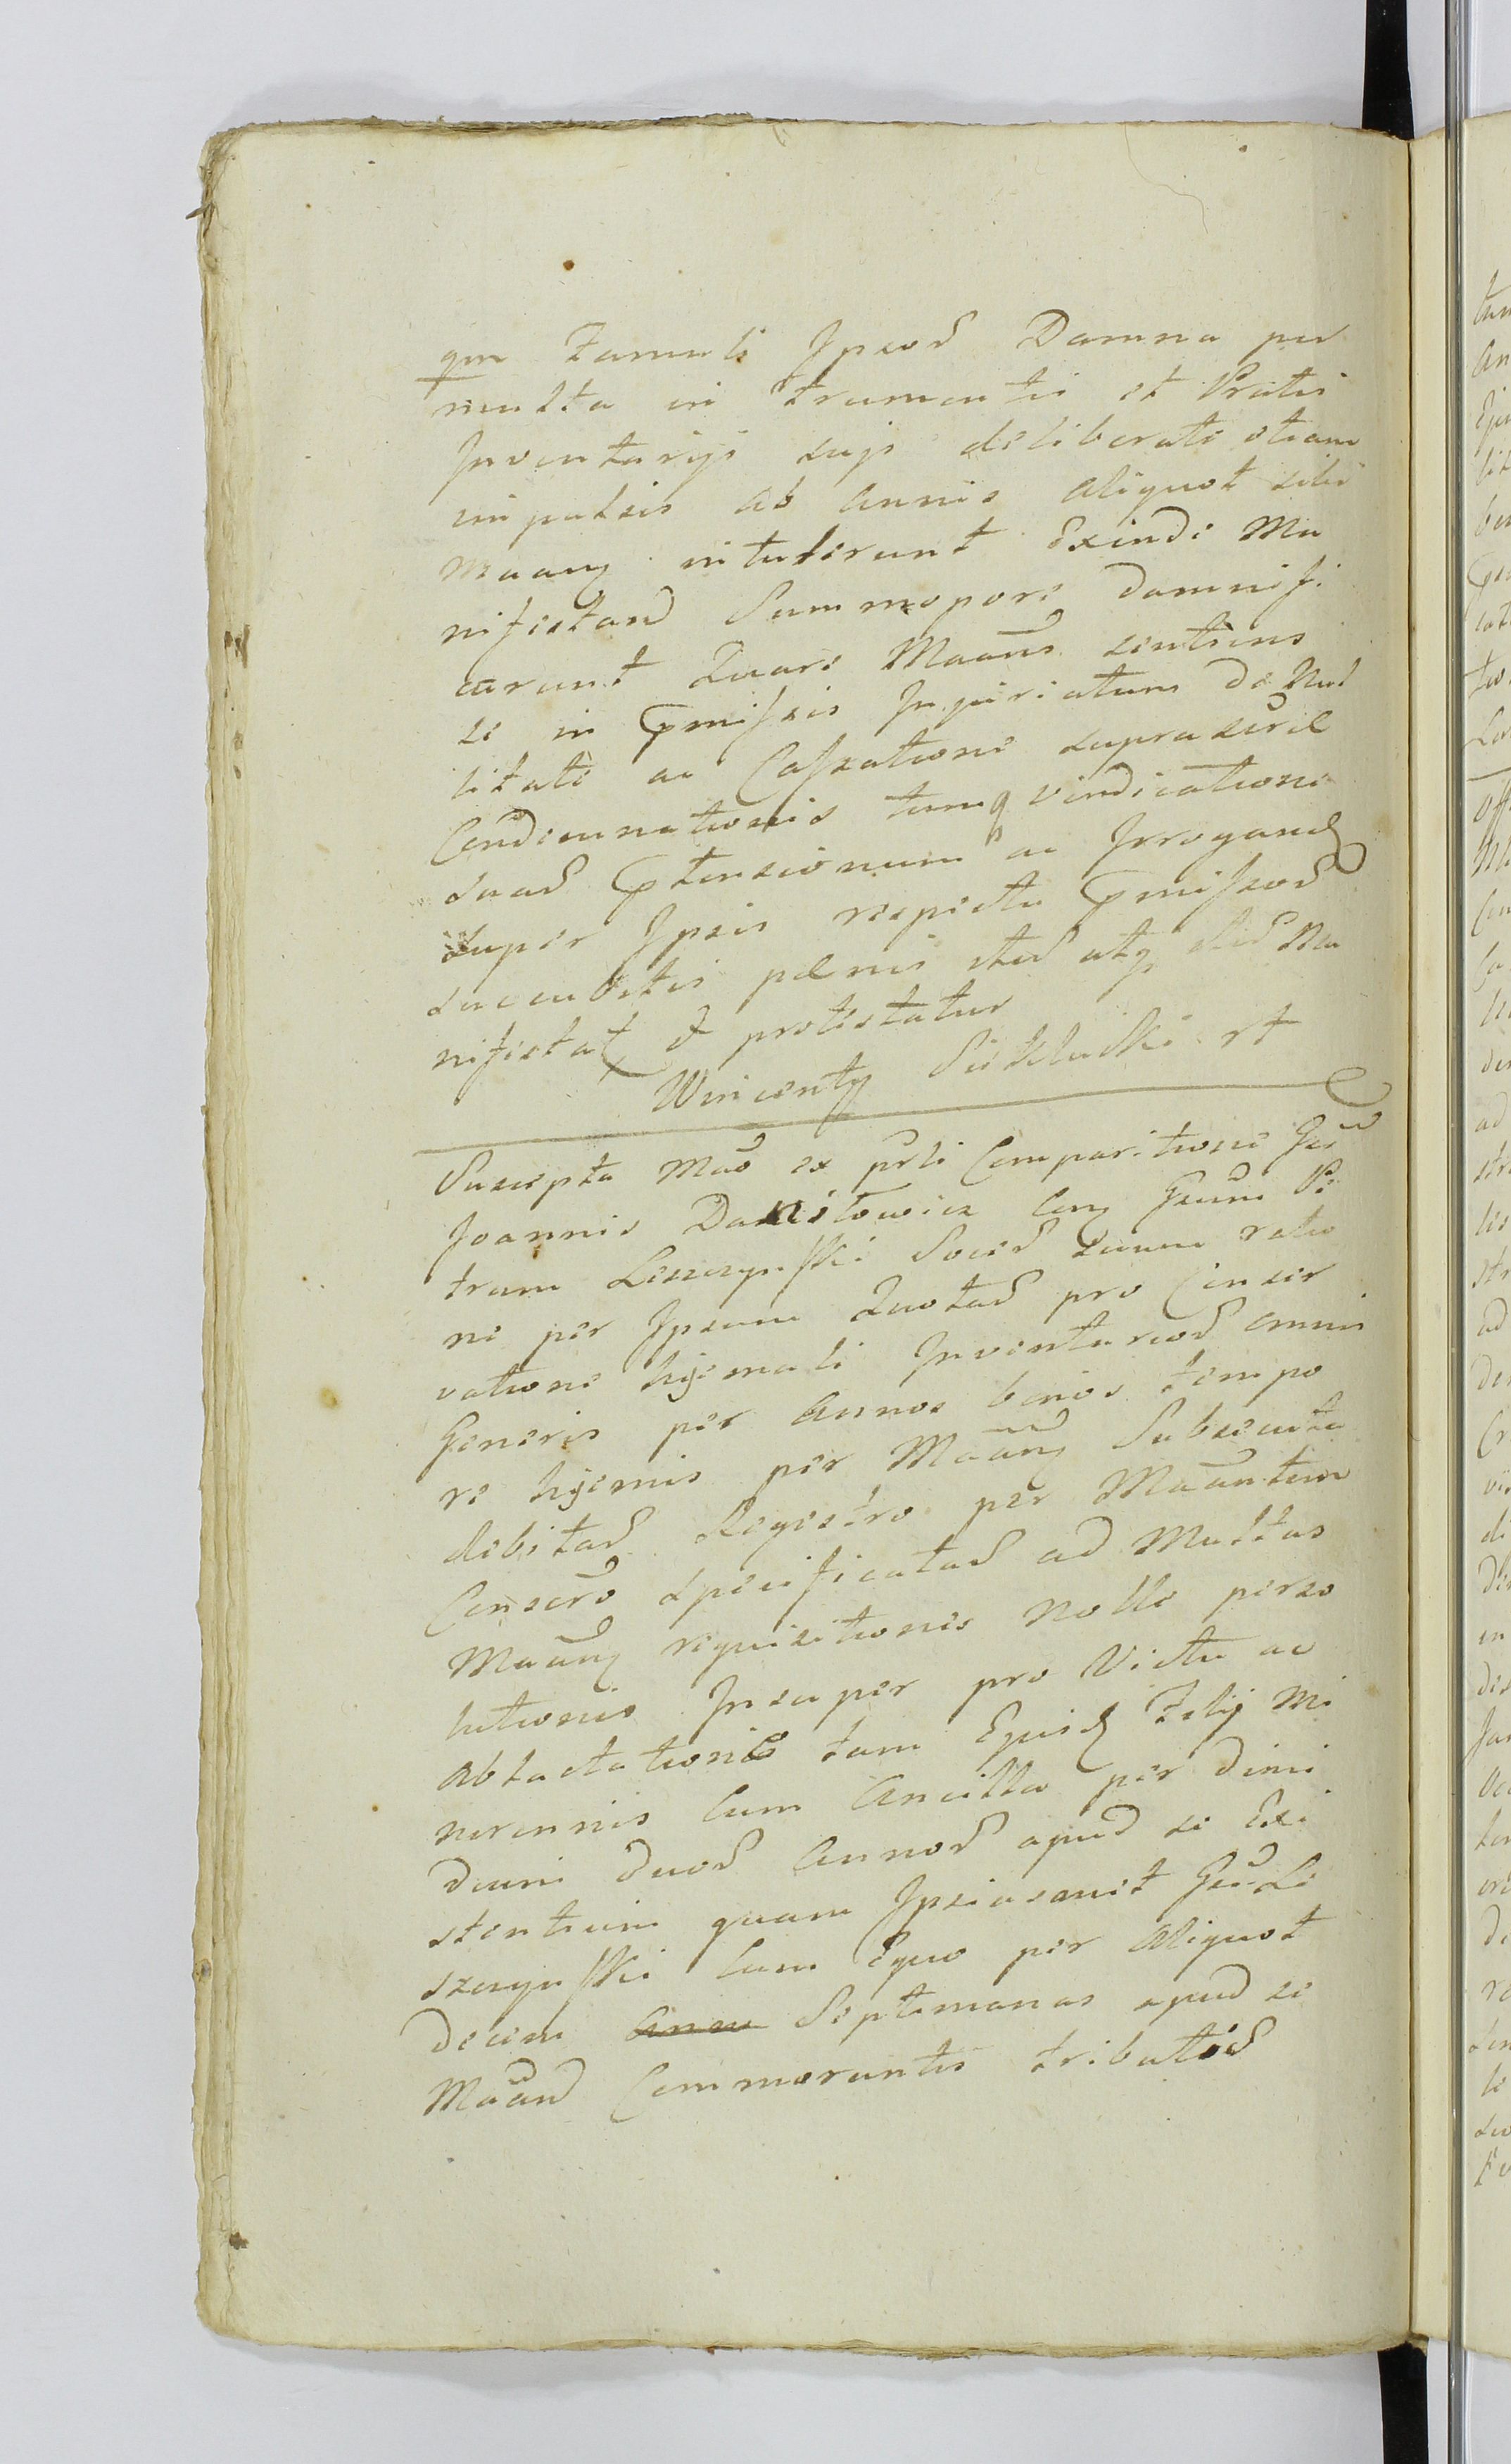 qm Famuli Ipsor Damna per
multa in frumentis et Pratis
Inventarijs suis deliberate etiam
impulsis ab Annis aliquot sibi
Maanj intulerunt Exinde Ma
nifestand Summopere damnifi
carunt Quare Maans sentiens
se in pmissis Injuriatum de Nul
litate ac Cassatione suprascrae
Condemnationis tumq vindicatione
suar ptensionum ac Irrogand
super Ipsis respectu pmissor
succubitis paenis itur atq itur Ma
nifestat & protestatur
Wincenty Siekluski rt
Suscepta Mao ex prli Comparitione Gsi
Joannis Daniłowicz Conj Gsum Pe
trum Leszczynski Socer suum ratio
ne per Ipsum Quotar pro Conser
vatione hyemali Inventarior omnis
Generis per Annos binos tempo
re hyemis per Maanj Subsecuta
debitar Regestro per Maantem
Conscro specificatar ad Multas
Maanj requisitiones nolle perso
lutionis Insuper pro Victu ac
ablactatione tam Equid Filij Mi
norennis cum Ancilla per dimi
dium duor Annor apud se Exi
stentium quam Ipsiusmet Gsi Le
szczynski cum Equo per aliquot
decem Septimanas apud se
Maand Commorantis tributor